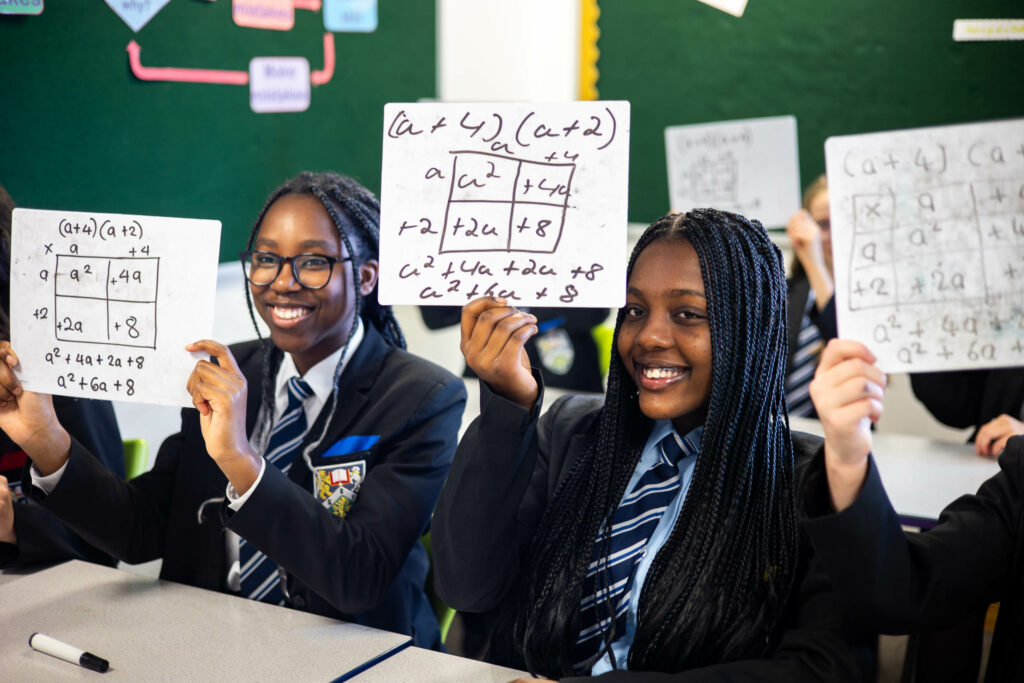 why?
mistakes
Make
mistakes
(a+4)(a+2)
x a +4
a a² +4a
+2 +2a +8
a² + 4a + 2a + 8
a² + 6a + 8
(a + 4)(a + 2)
a +4
a a² +4a
+2 +2a +8
a² + 4a + 2a + 8
a² + 6a + 8
(a + 4) (a +
x a
a a² +
+2 +2a
a² + 4a +
a² + 6a +